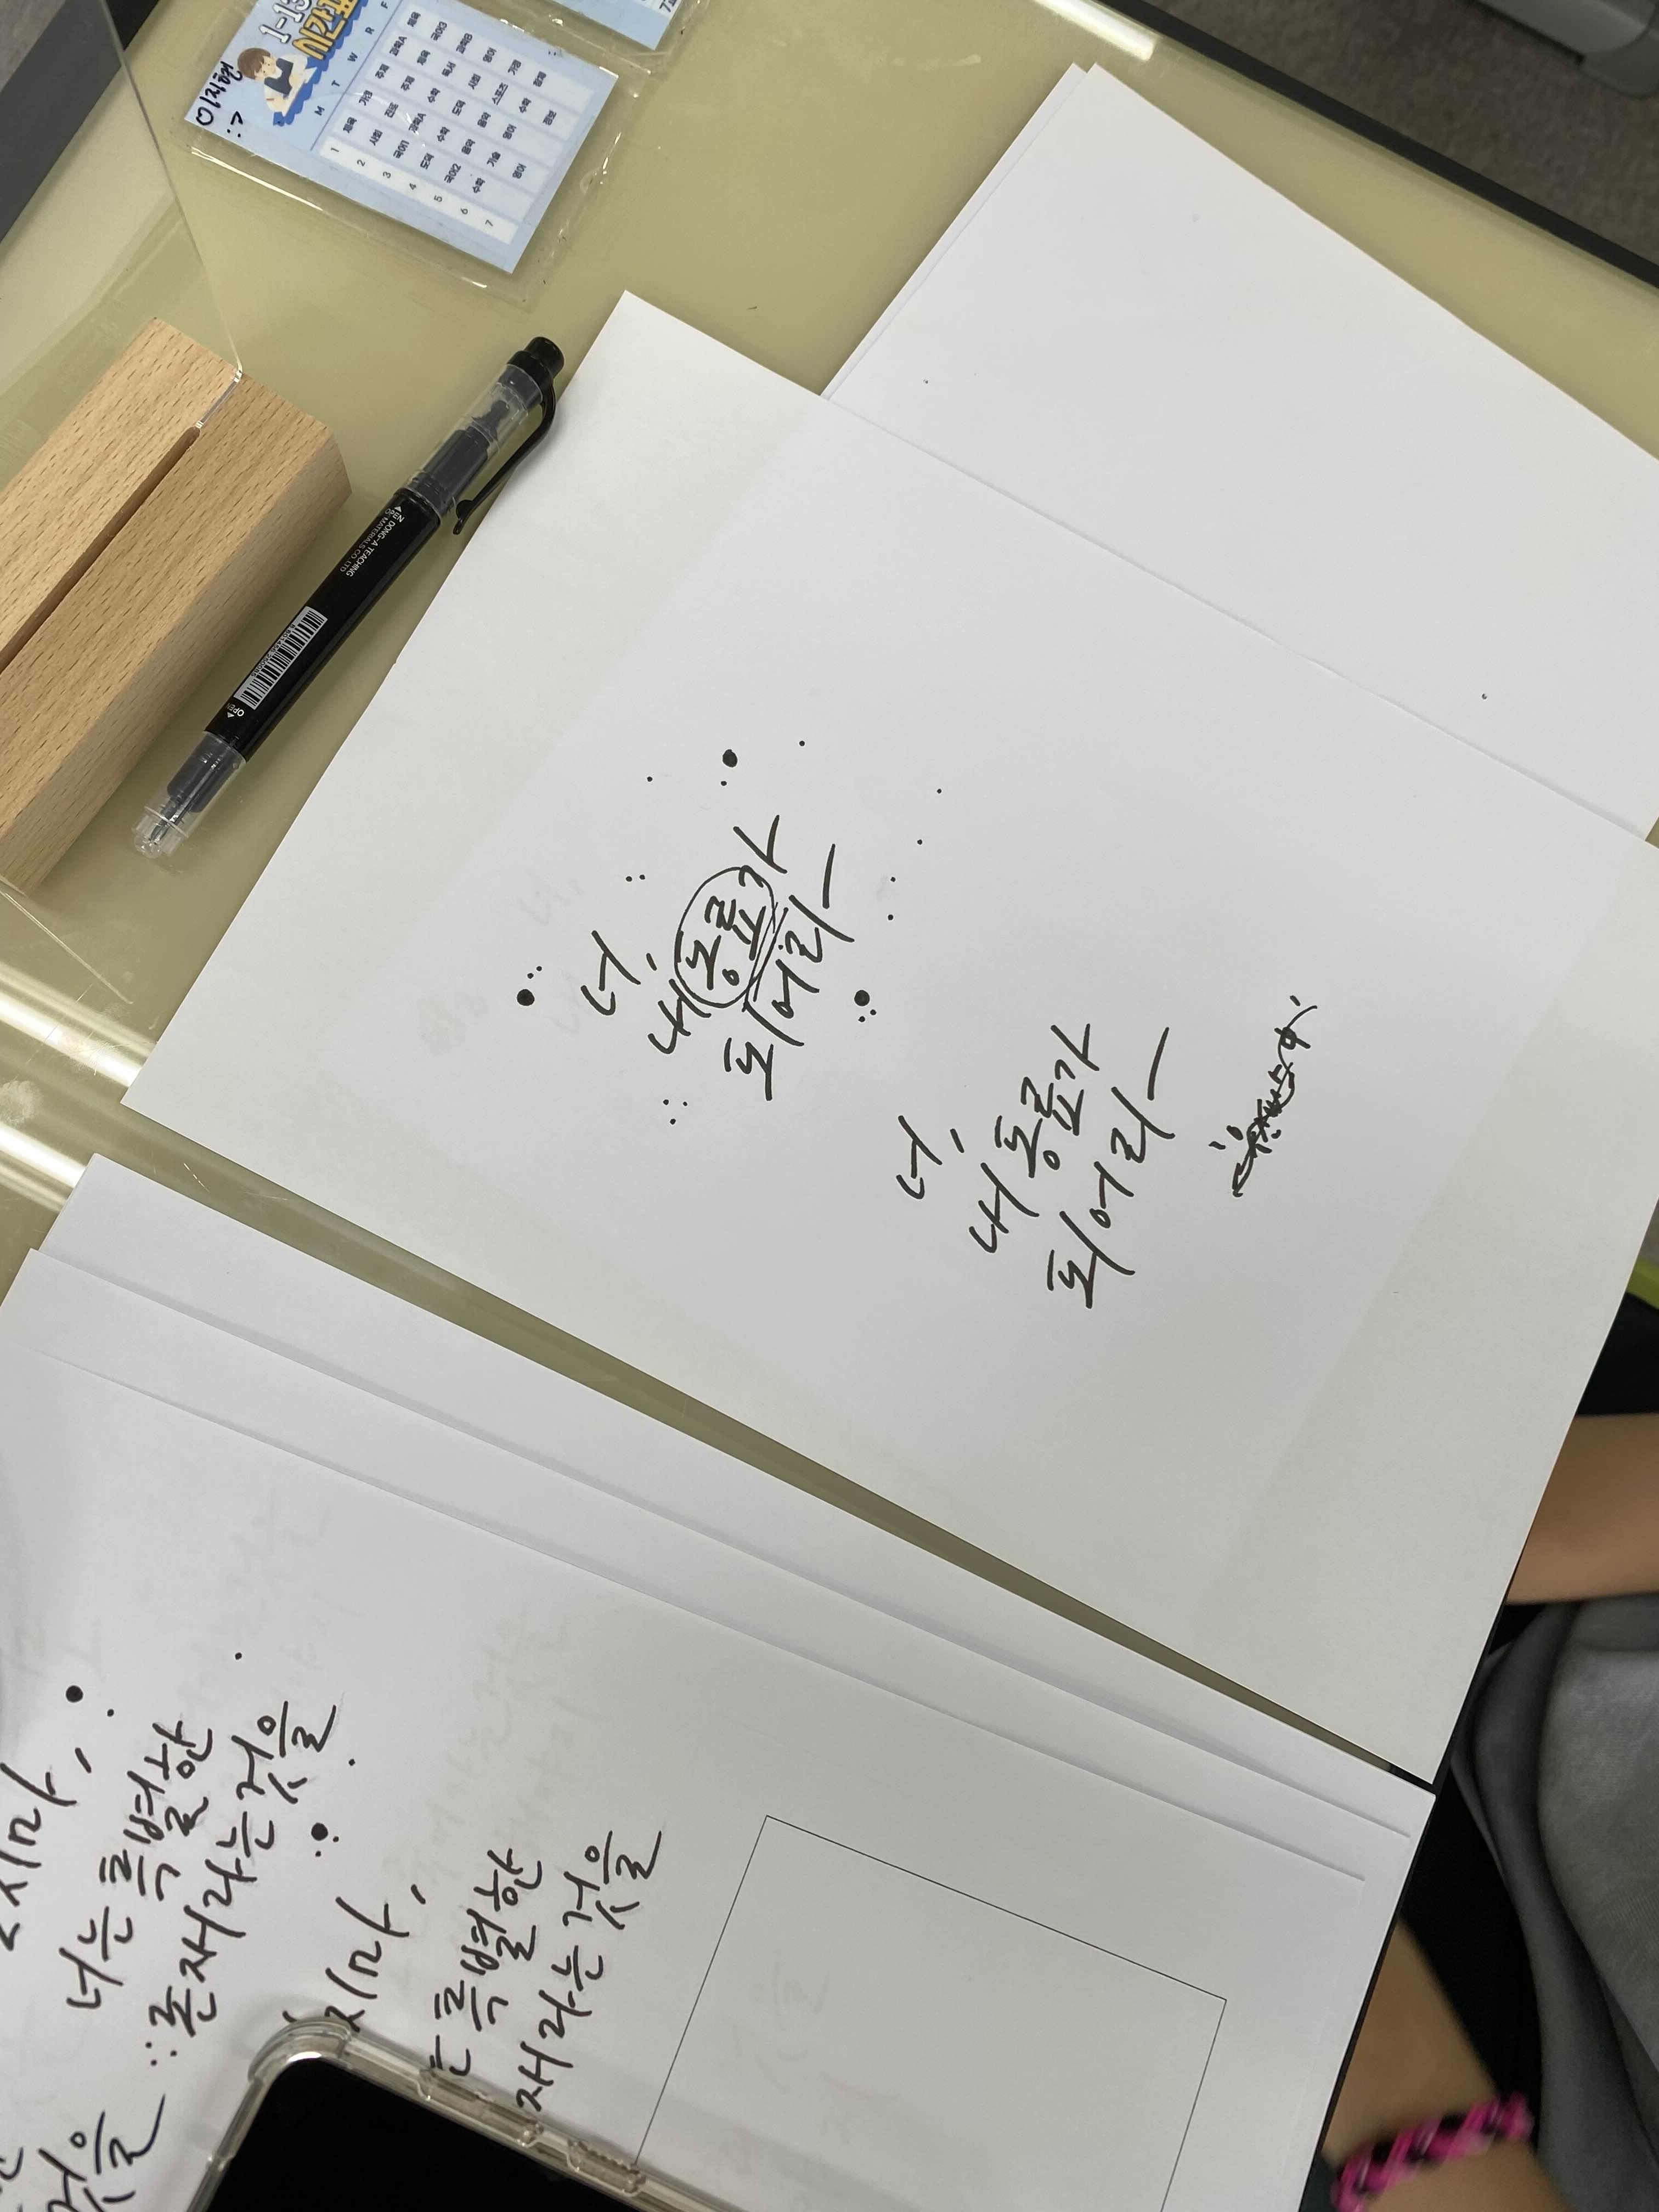 이지현
:>
1-13
시간표
M T W R F
1 체육 가정 주제 과학A 체육
2 사회 진로 주제 체육 국어3
3 국어1 과학A 수학 독서 과학B
4 도덕 수학 도덕 사회 영어
5 국어2 음악 음악 스포츠 가정
6 수학 기술 영어 수학 주제
7 영어 정보
DONG-A TEACHING
MATERIALS CO. LTD
너,
내 동료가
되어라
너,
내 동료가
되어라
지마,
너는 특별한
존재라는 것을
지마,
는 특별한
재라는 것을
것을